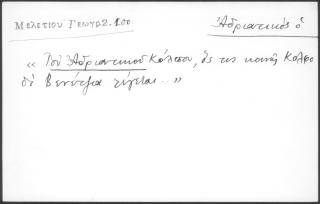 Μελετίου Γεωγρ 2.100
Ἀδριαντικός ὁ
« Τοῦ Ἀδριαντικοῦ Κόλπου, ὃς τις κοινῶς Κόλφο
δὲ Βενέτζια λέγεται... »